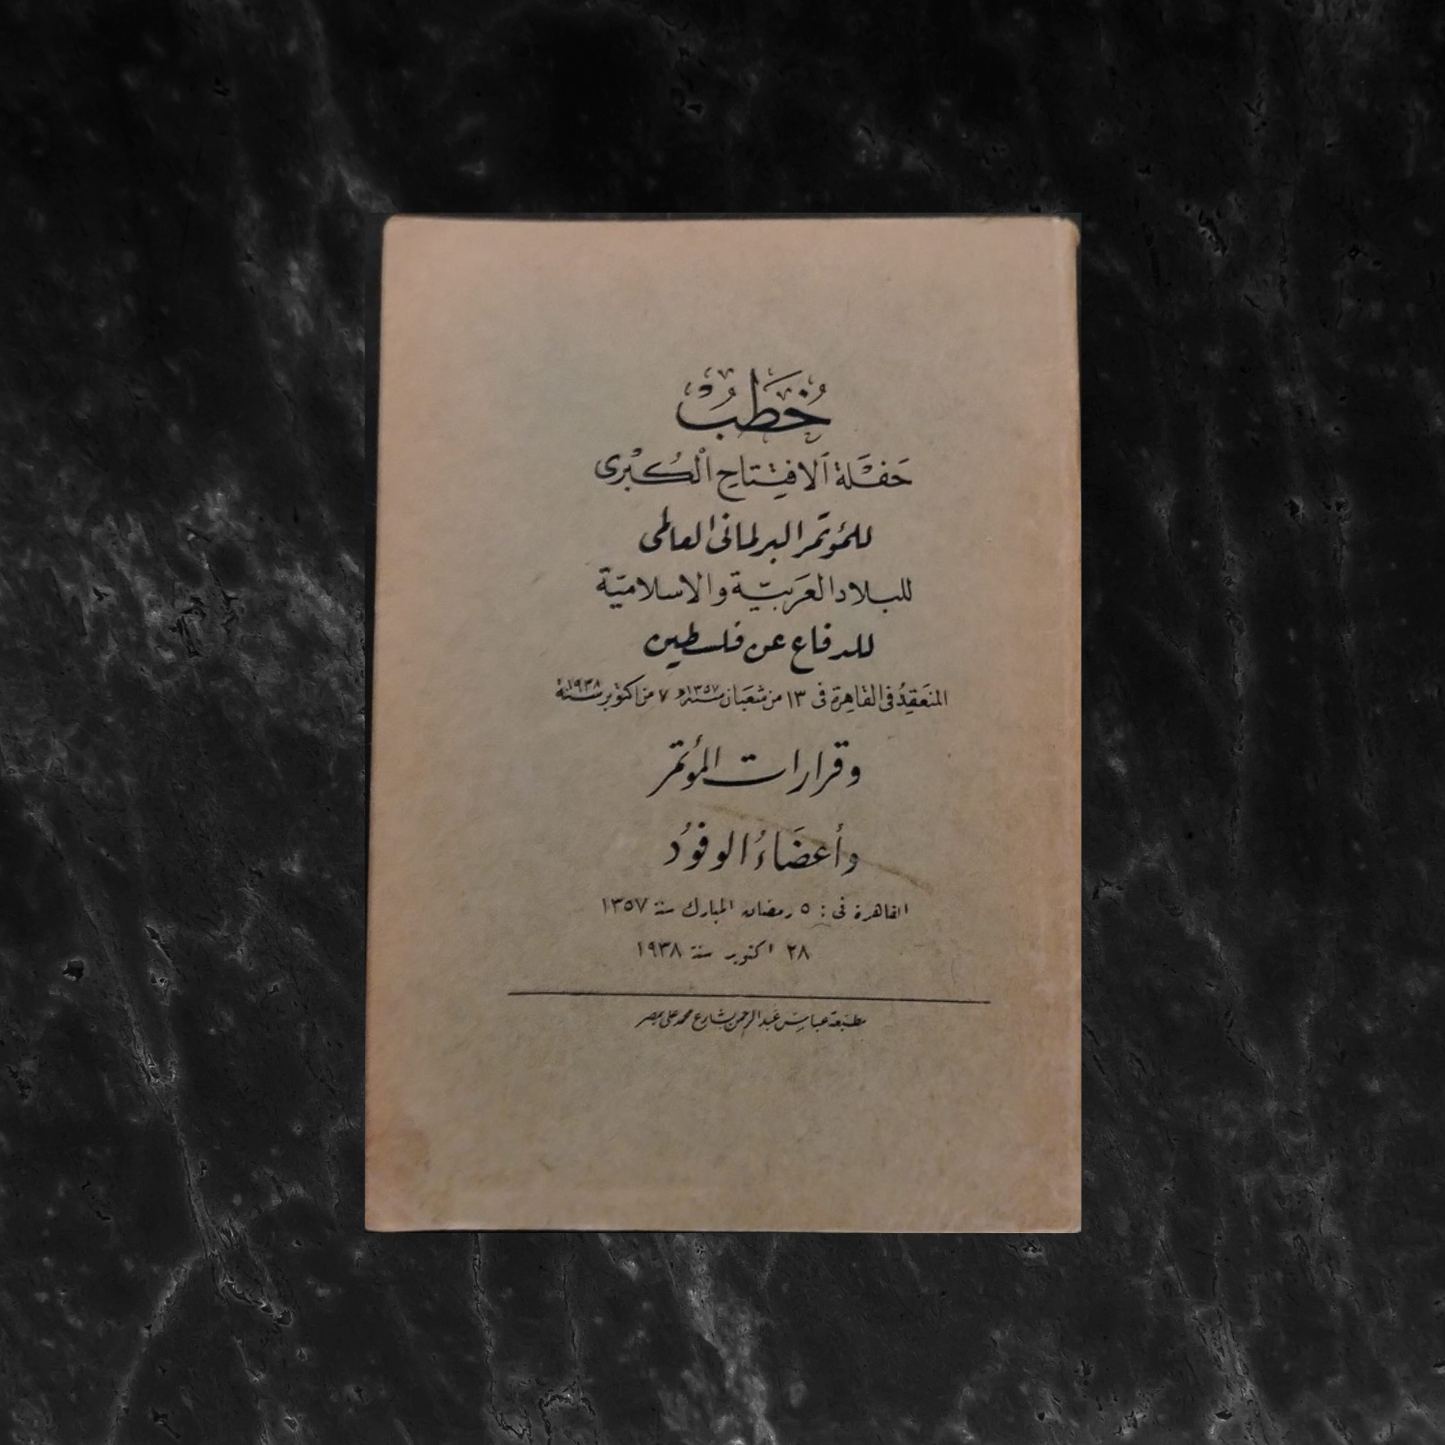 خُطَبُ
حَفْلَة الافِتِتَاحِ الْكُبْرى
للمُؤتمَر البرلمانى العالمى
للبلاد العَرَبيَّة والاسلاميَّة
للدفاع عن فلسطين
المنعَقِدُ فى القاهِرَة فى ١٣ من شعَبان سنة ١٣٥٧ و ٧ من اكتوبر سنة ١٩٣٨
وقرارات المؤتمَر
وأعضَاءُ الوفوُد
القاهرة فى : ٥ رمضان المبارك سنة ١٣٥٧
٢٨ اكتوبر سنة ١٩٣٨
مطبَعة عباسْ عَبد الرحمن بشارع محمد على بمصر